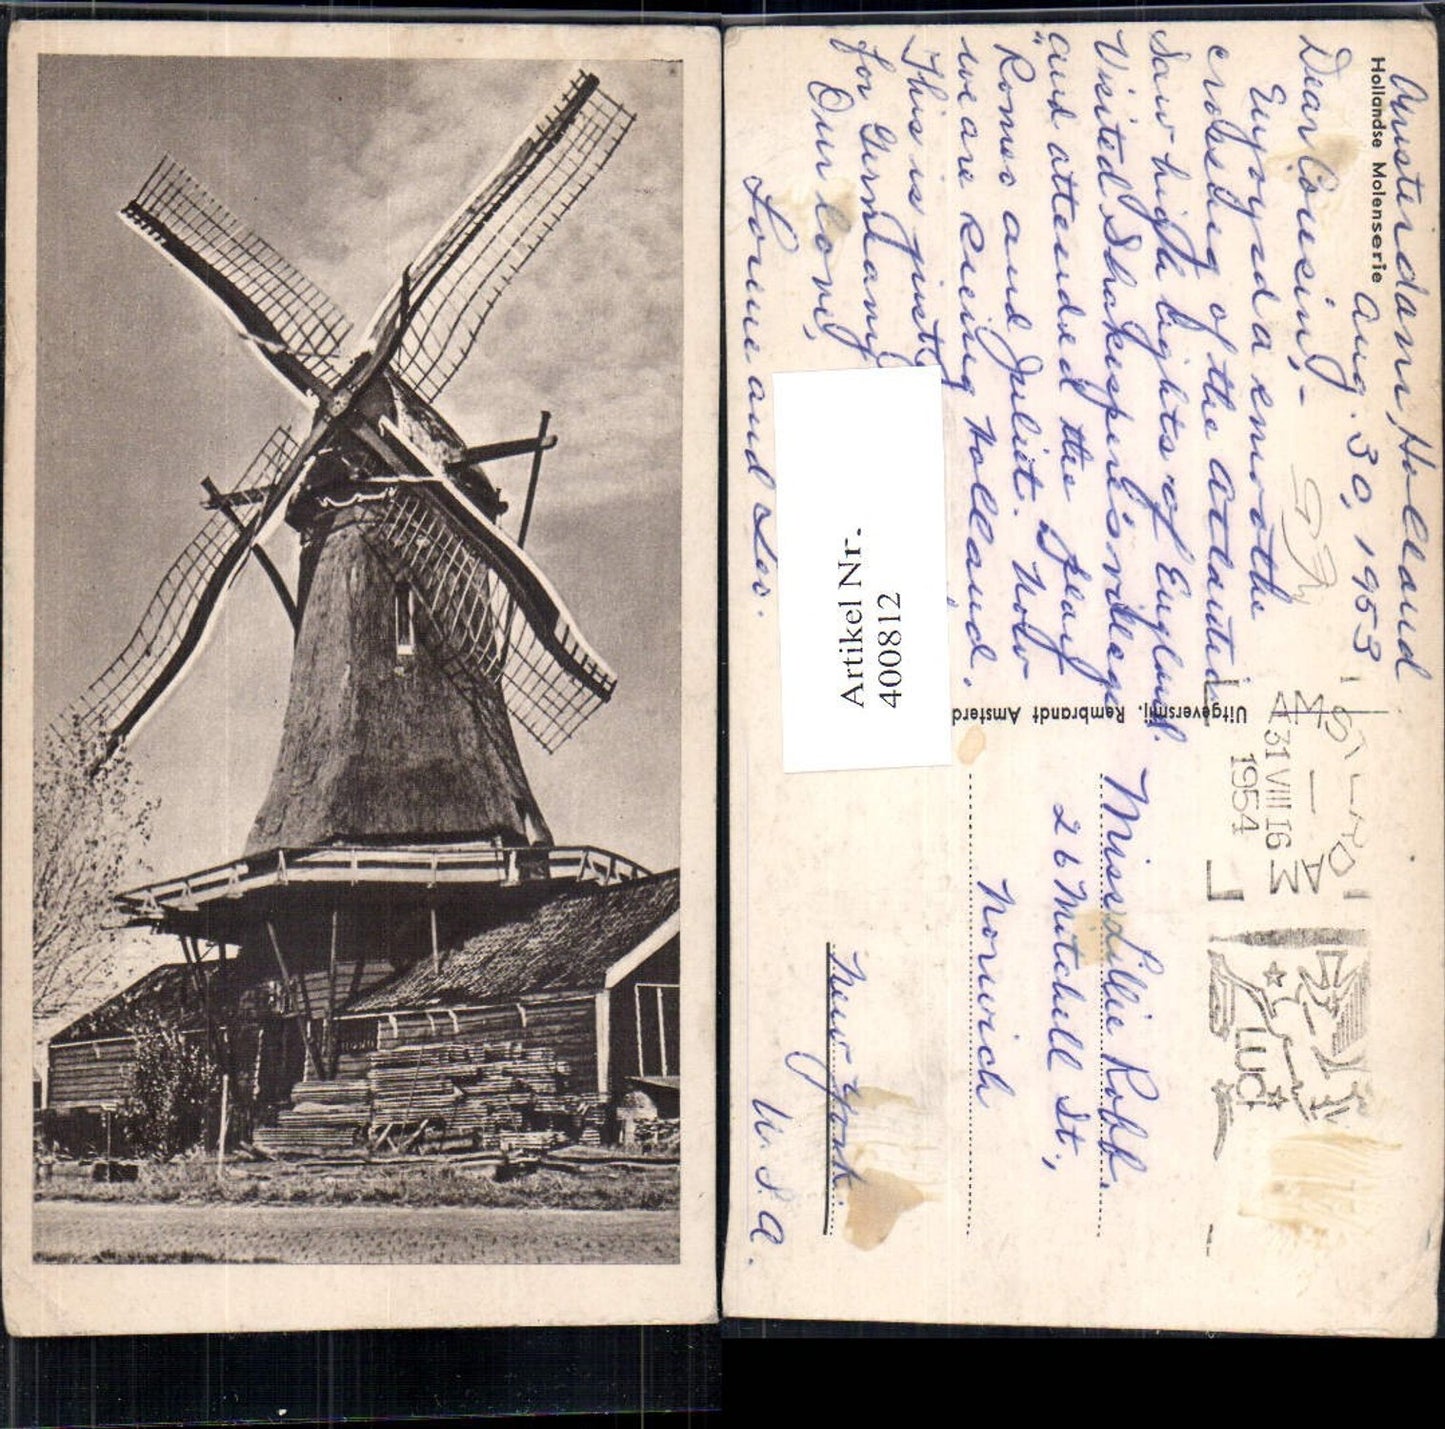 Amsterdam, Holland
Hollandse Molenserie
Aug. 30, 1953
Dear Cousin,-
Enjoyed a smooth
crossing of the Atlantic.
Saw high lights of England.
Visited Shakespere's village
and attended the play
"Romeo and Juliet. Now
we are seeing Holland.
This is just
for Germany
Our love,
Lorene and Leo.
Uitgeversmij. Rembrandt Amsterd
Artikel Nr.
400812
AMSTERDAM
31 VIII 16
1954
Miss Lillie Robb,
26 Mitchell St.,
Norwich
New York.
U.S.A.